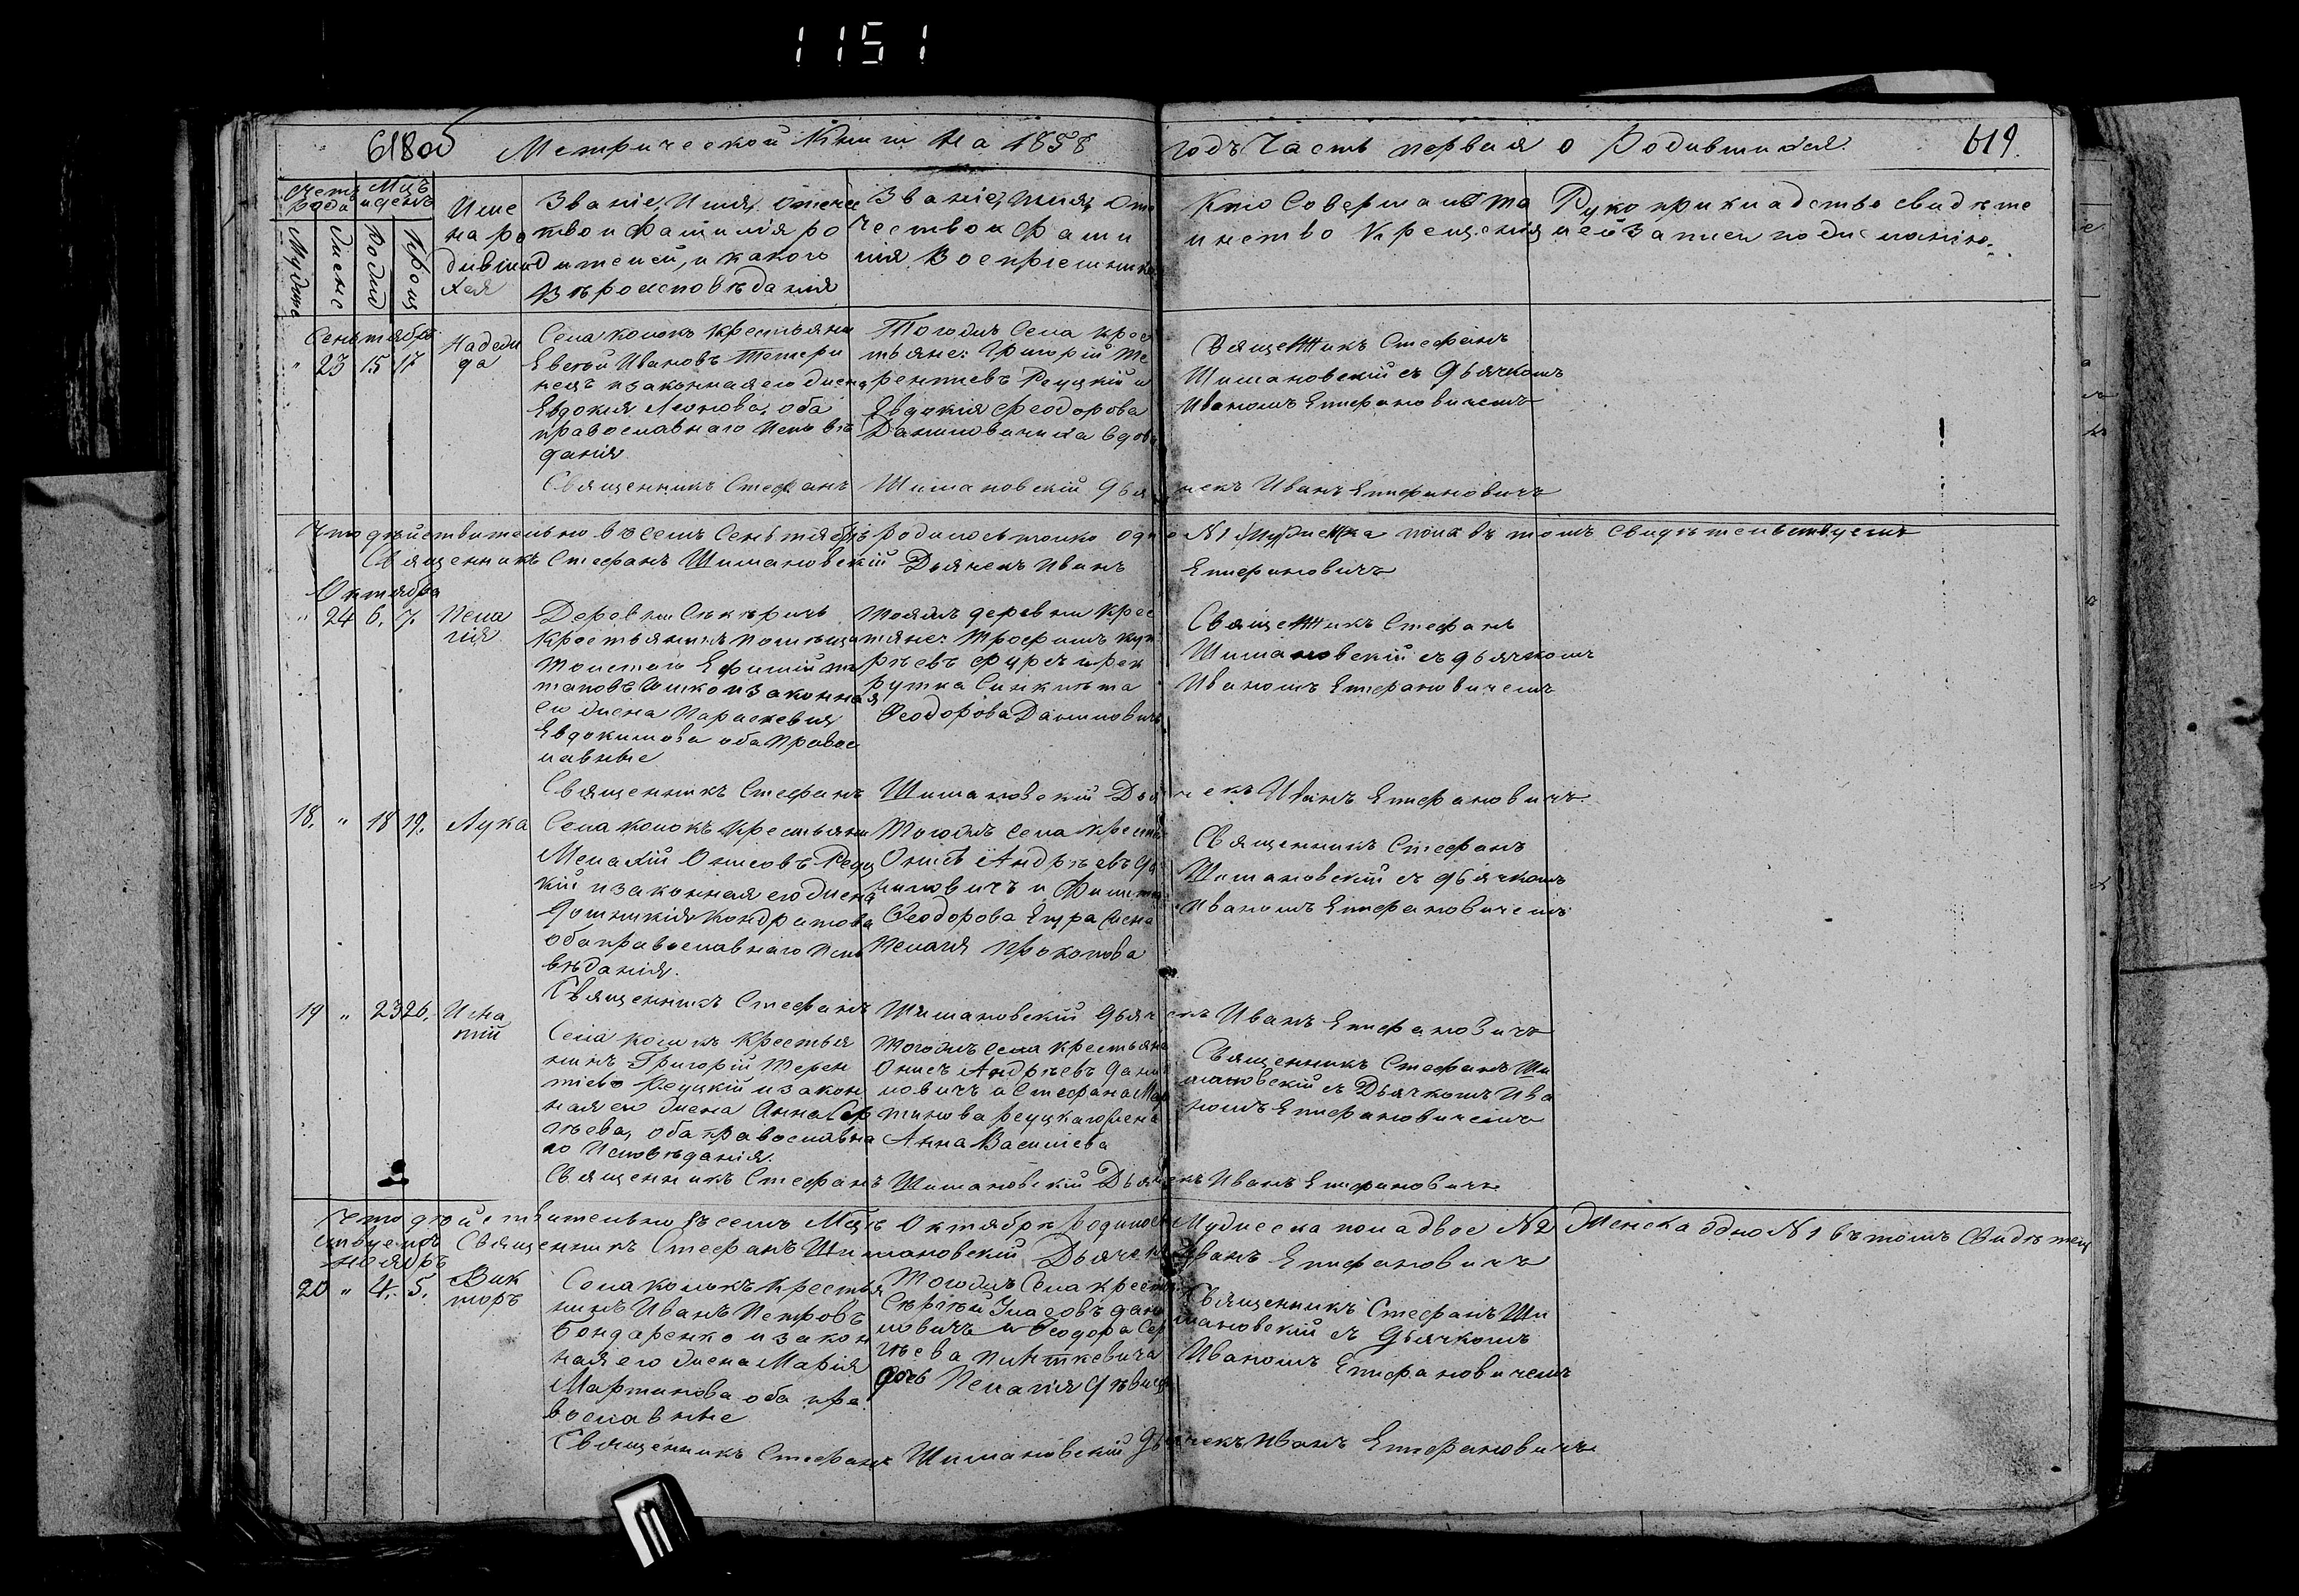 1151
618об Метрической Книги на 1858
годъ Часть первая о Родившихся
619.
Счетъ рода
Мцъ и день
Муже
Женс
Рожд
Крещ
Име
на ро
дивши
хся
Званіе, Имя, Отече
тво и Фамилія ро
дителей, и какого
Вѣроисповѣданія
Званіе, Имя, Оте
чество и Фами
лія Воспріемнико
Кто Совершалъ та
инство Крещенія
Рукоприкладство свидѣте
лей Записи по желанію.
Сентябрь
" 23 15 17
Надежда
Села колокъ крестьянинъ
Иванов
и законная его жена
Евдокія
оба
православнаго Испове
данія
Тогожъ Села крес
тьяне: Григорій Те
рентіевъ Реуцкій и
Евдокія Феодорова
Даниловичиха вдова
Священникъ Стефанъ
Шимановскій съ дьячкомъ
Иваномъ Епифановичемъ
Священникъ Стефанъ Шимановскій Дьячекъ Иванъ Епифановичъ
Что дѣйствительно въ семъ Сентябрѣ родилось только одно №1 женска пола въ томъ свидѣтельствуемъ
Священникъ Стефанъ Шимановскій Дьячекъ Иванъ Епифановичъ
Октября
" 24 6. 7.
Пела
гія
Деревни
крестьянинъ помѣщи
Толстого Ефимій
и законная
его жена Параскевия
Евдокимова оба правос
лавные
Тояжъ деревни крес
тяне: Трофимъ
Феодорова Данилович
Священникъ Стефанъ
Шимановскій съ дьячкомъ
Иваномъ Епифановичемъ
Священникъ Стефанъ Шимановскій Дьячекъ Иванъ Епифановичъ
18. " 18 19.
Лука
Села колокъ крестьянинъ
Онисовъ Реуц
кій и законная его жена
Кондратова
оба православнаго Испо
вѣданія.
Тогожъ села крестья
Онисъ Андрѣевъ Да
ниловичъ и
Феодорова жена
Пелагія Прокопова
Священникъ Стефанъ
Шимановскій съ дьячкомъ
Иваномъ Епифановичемъ
Священникъ Стефанъ Шимановскій дьячекъ Иванъ Епифановичъ
19 " 23 26.
Игна
тій
Села колокъ Крестья
нинъ Григорій Терен
тіевъ Реуцкій и закон
ная его жена Анна Сер
гѣева, оба православна
го Исповѣданія.
Тогожъ села крестьяне
Онисъ Андрѣевъ Дани
ловичъ и Стефана Мар
тинова Реуцкаго жена
Анна Василіева
Священникъ Стефанъ Ши
мановскій съ Дьячкомъ Ива
номъ Епифановичемъ
Священникъ Стефанъ Шимановскій Дьячекъ Иванъ Епифановичъ
Что дѣйствительно въ семъ Мцѣ Октябрѣ родилось Мужеска пола двое №2 Женска одно №1 въ томъ Свидѣтель
ствуемъ Священникъ Стефанъ Шимановскій Дьячекъ Иванъ Епифановичъ
Ноябрь
20 " 4. 5.
Вик
торъ
Села колокъ Крестья
нинъ Иванъ Петровъ
Бондаренко и закон
ная его жена Марія
Мартинова оба пра
вославные
Тогожъ Села крестья
Сергѣй Власовъ Дани
ловичъ и Феодора Сер
гѣева
дочь Пелагія дѣвица
Священникъ Стефанъ Ши
мановскій съ Дьячкомъ
Иваномъ Епифановичемъ
Священникъ Стефанъ Шимановскій Дьячекъ Иванъ Епифановичъ